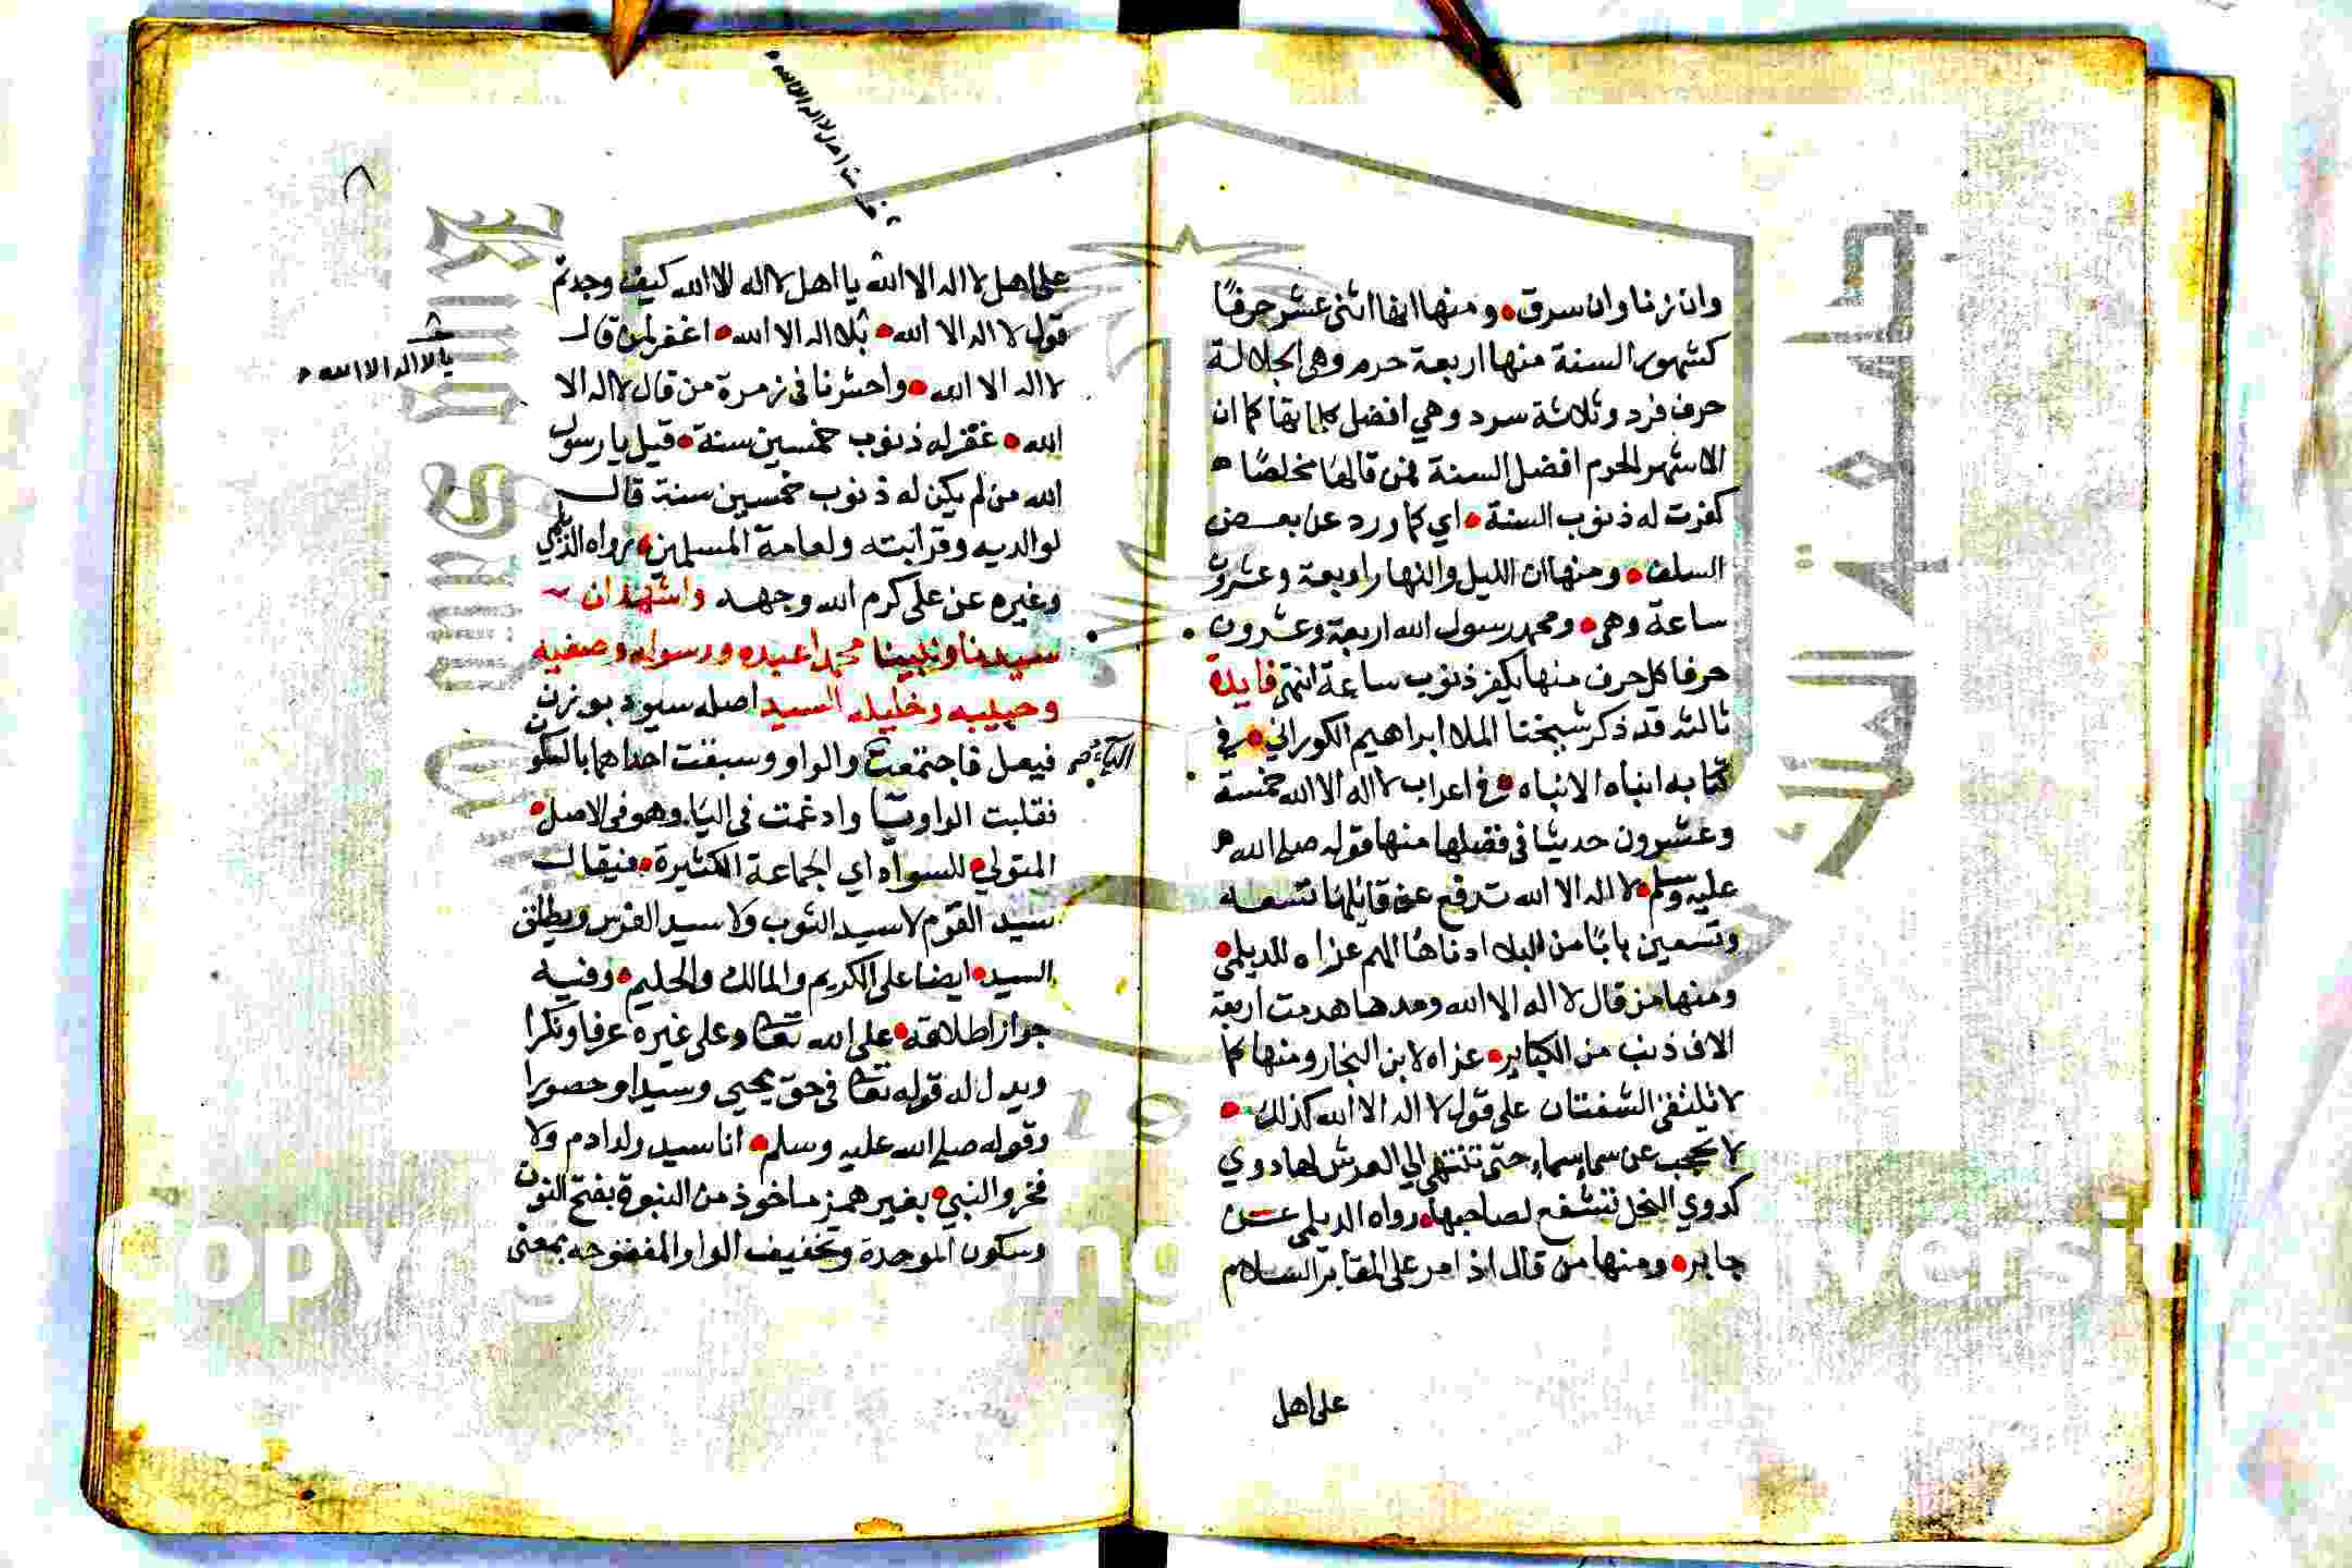 وان زنا وان سرق • ومنها انها اثنى عشر حرفًا
كشهور السنة منها اربعة حرم وهي الجلالة
حرف فرد وثلاثة سرد وهي افضل كلماتها كما ان
الاشهر الحرم افضل السنة فمن قالها مخلصًا ه
كفرت له ذنوب السنة • اي كما ورد عن بعض
السلف • ومنها ان الليل والنهار اربعة وعشرون
ساعة وهي • ومحمد رسول الله اربعة وعشرون
حرفا كل حرف منها يكفر ذنوب ساعة انتهى فايدة
ثالثه قد ذكر شيخنا الملا ابراهيم الكوراني • في
كتابه انباه الانباه • في اعراب لا اله الا الله خمسة
وعشرون حديثا في فضلها منها قوله صلى الله ه
عليه وسلم • لا اله الا الله تدفع عن قائلها تسعه
وتسعين بابًا من البلاء ادناها الهم عزاه للديلمي •
ومنها من قال لا اله الا الله ومدها هدمت اربعة
الاف ذنب من الكباير • عزاه لابن النجار ومنها كما
لا تلتقي الشفتان على قول لا اله الا الله كذلك •
لا تحجب عن سماء سماء حتى تنتهي الى العرش لها دوي
كدوي النحل تشفع لصاحبها • رواه الديلمي عن
جابر • ومنها من قال اذا مر على المقابر السلام
على اهل
على اهل لا اله الا الله يا اهل لا اله الا الله كيف وجدتم
قول لا اله الا الله • بلا اله الا الله • اغفر لمن قال
لا اله الا الله • واحشرنا في زمرة من قال لا اله الا
الله • غفر له ذنوب خمسين سنة • قيل يا رسول
الله من لم يكن له ذنوب خمسين سنة قال
لوالديه وقرابته ولعامة المسلمين • رواه الديلمي
وغيره عن علي كرم الله وجهه واشهد ان
سيدنا ونبينا محمدا عبده ورسوله وصفيه
وحبيبه وخليله السيد اصله سيود بوزن
فيعل فاجتمعت والواو وسبقت احداهما بالسكون
الياء صح
فقلبت الواو يا وادغمت في اليا وهو في الاصل •
المتولي • للسواد اي الجماعة الكثيرة • فيقال
سيد القوم لا سيد الثوب ولا سيد الفرس ويطلق
السيد • ايضا على الكريم والمالك والحليم • وفيه
جواز اطلاقه • على الله تعا وعلى غيره عرفا ونكرا
ويدل له قوله تعا في حق يحيى وسيدا وحصورا
وقوله صلى الله عليه وسلم • انا سيد ولد ادم ولا
فخر والنبي • بغير همز ماخوذ من النبوة بفتح النون
وسكون الموحدة وتخفيف الواو المفتوحه بمعنى
يا لا اله الا الله
جامعة الملك